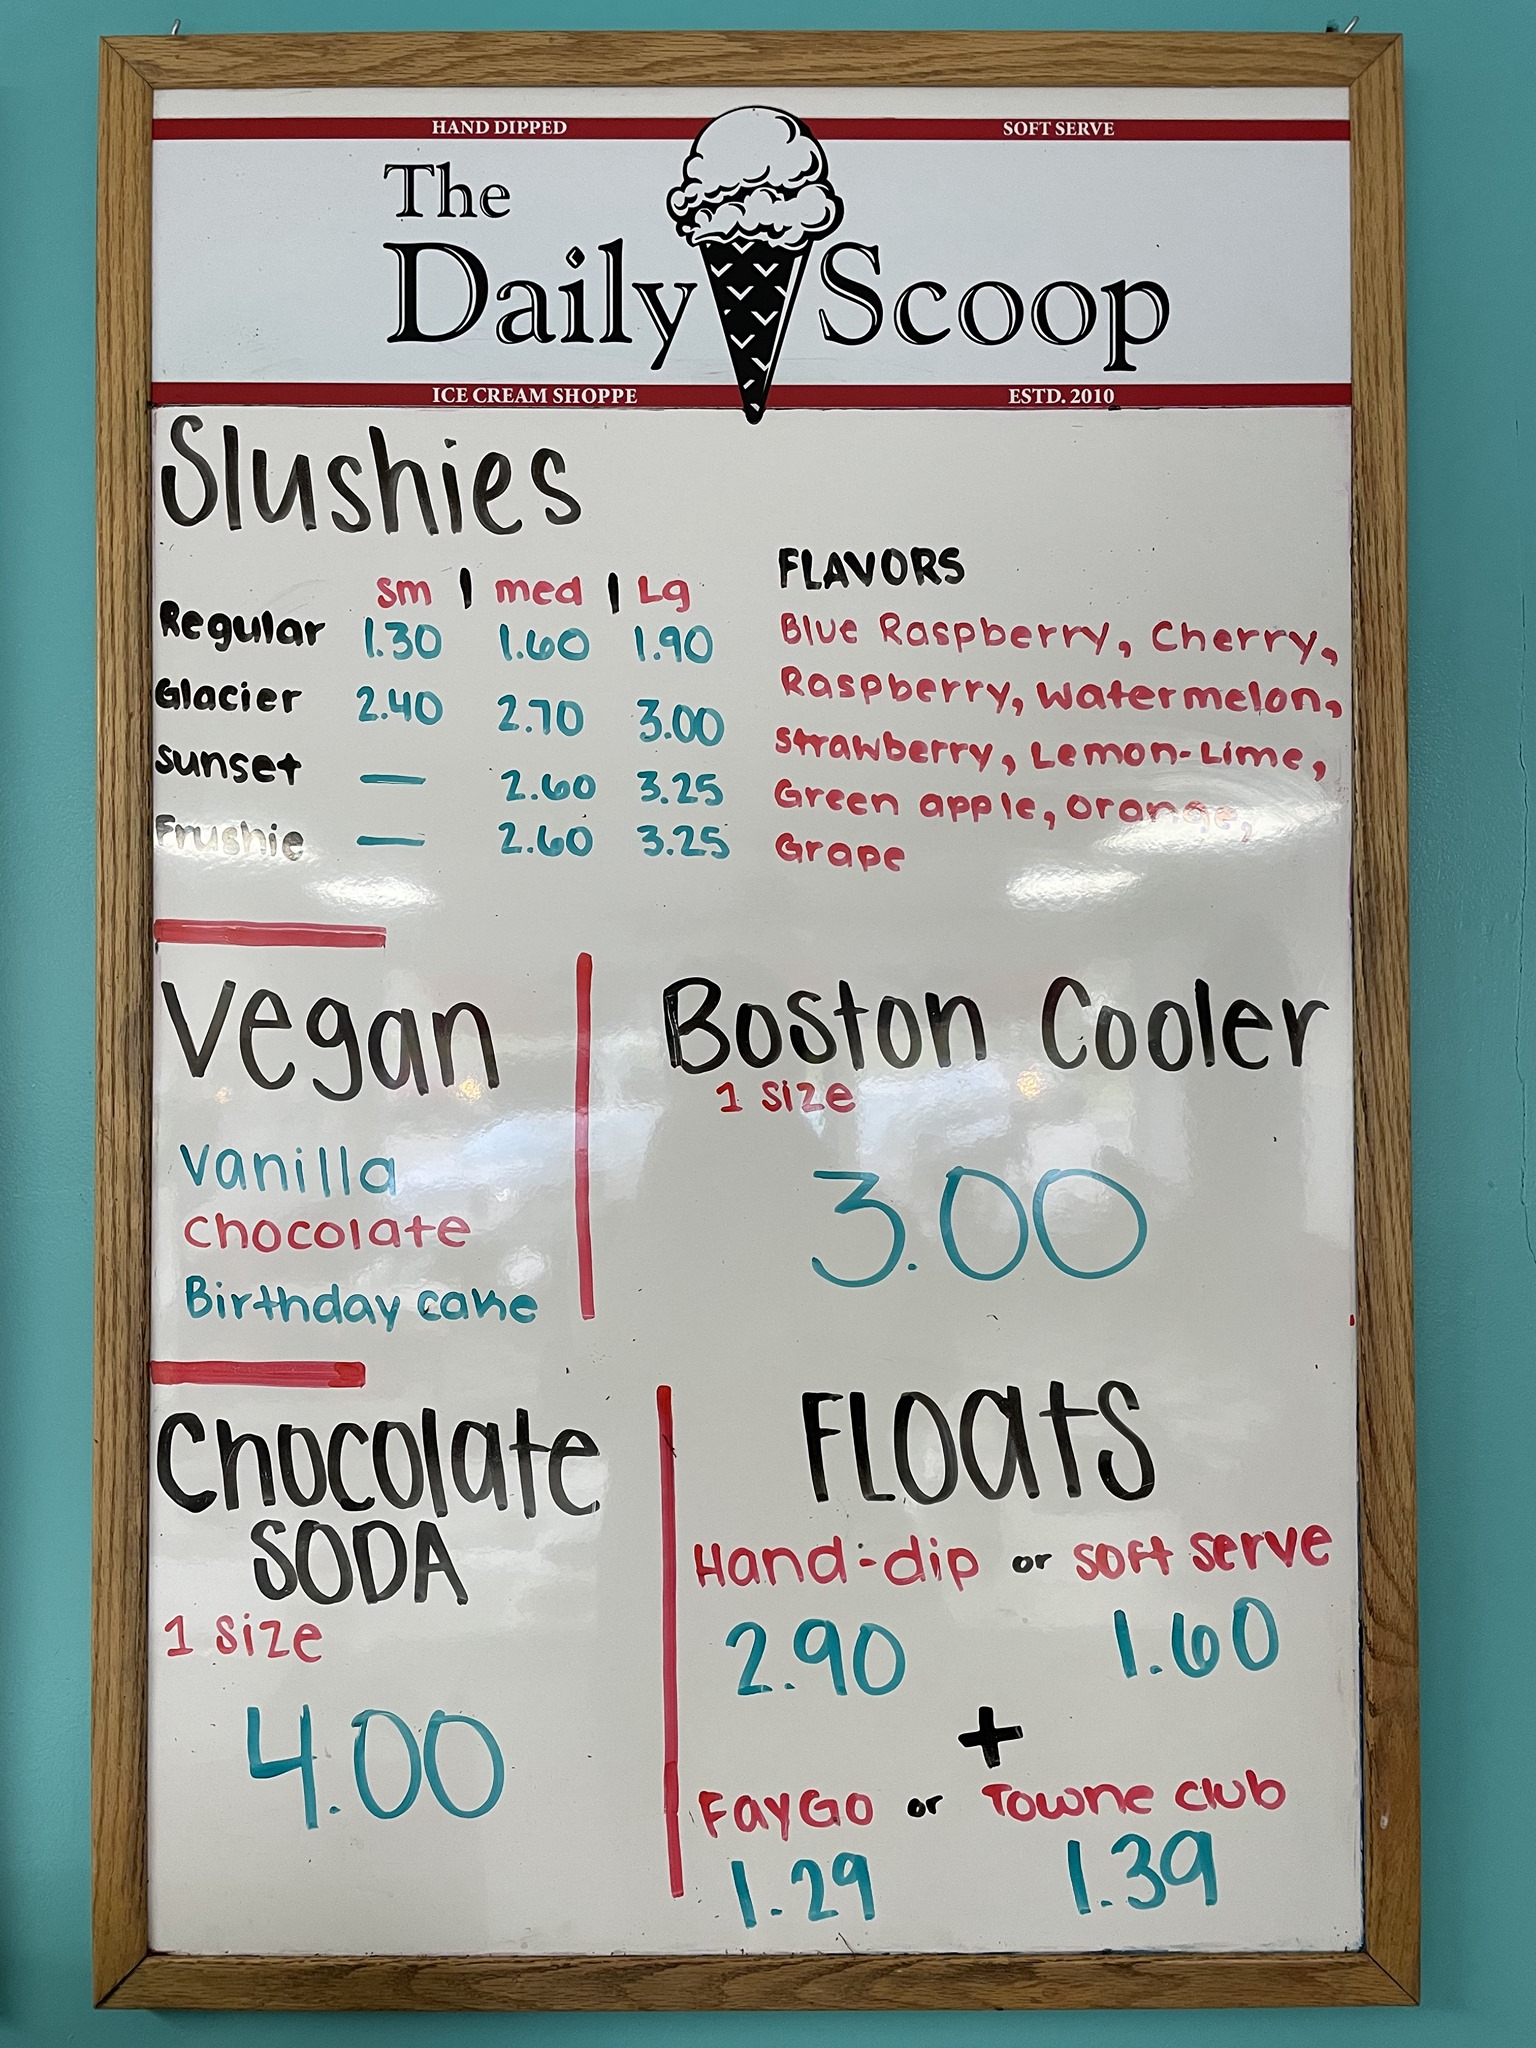 HAND DIPPED SOFT SERVE
The
Daily Scoop
ICE CREAM SHOPPE ESTD. 2010
Slushies
sm | med | Lg
Regular 1.30 1.60 1.90
Glacier 2.40 2.70 3.00
sunset — 2.60 3.25
Frushie — 2.60 3.25
FLAVORS
Blue Raspberry, Cherry,
Raspberry, Watermelon,
strawberry, Lemon-Lime,
Green apple, orange,
Grape
Vegan
Vanilla
chocolate
Birthday cake
Boston Cooler
1 size
3.00
Chocolate
SODA
1 size
4.00
FLOats
Hand-dip or soft serve
2.90 1.60
+
FayGo or Towne club
1.29 1.39